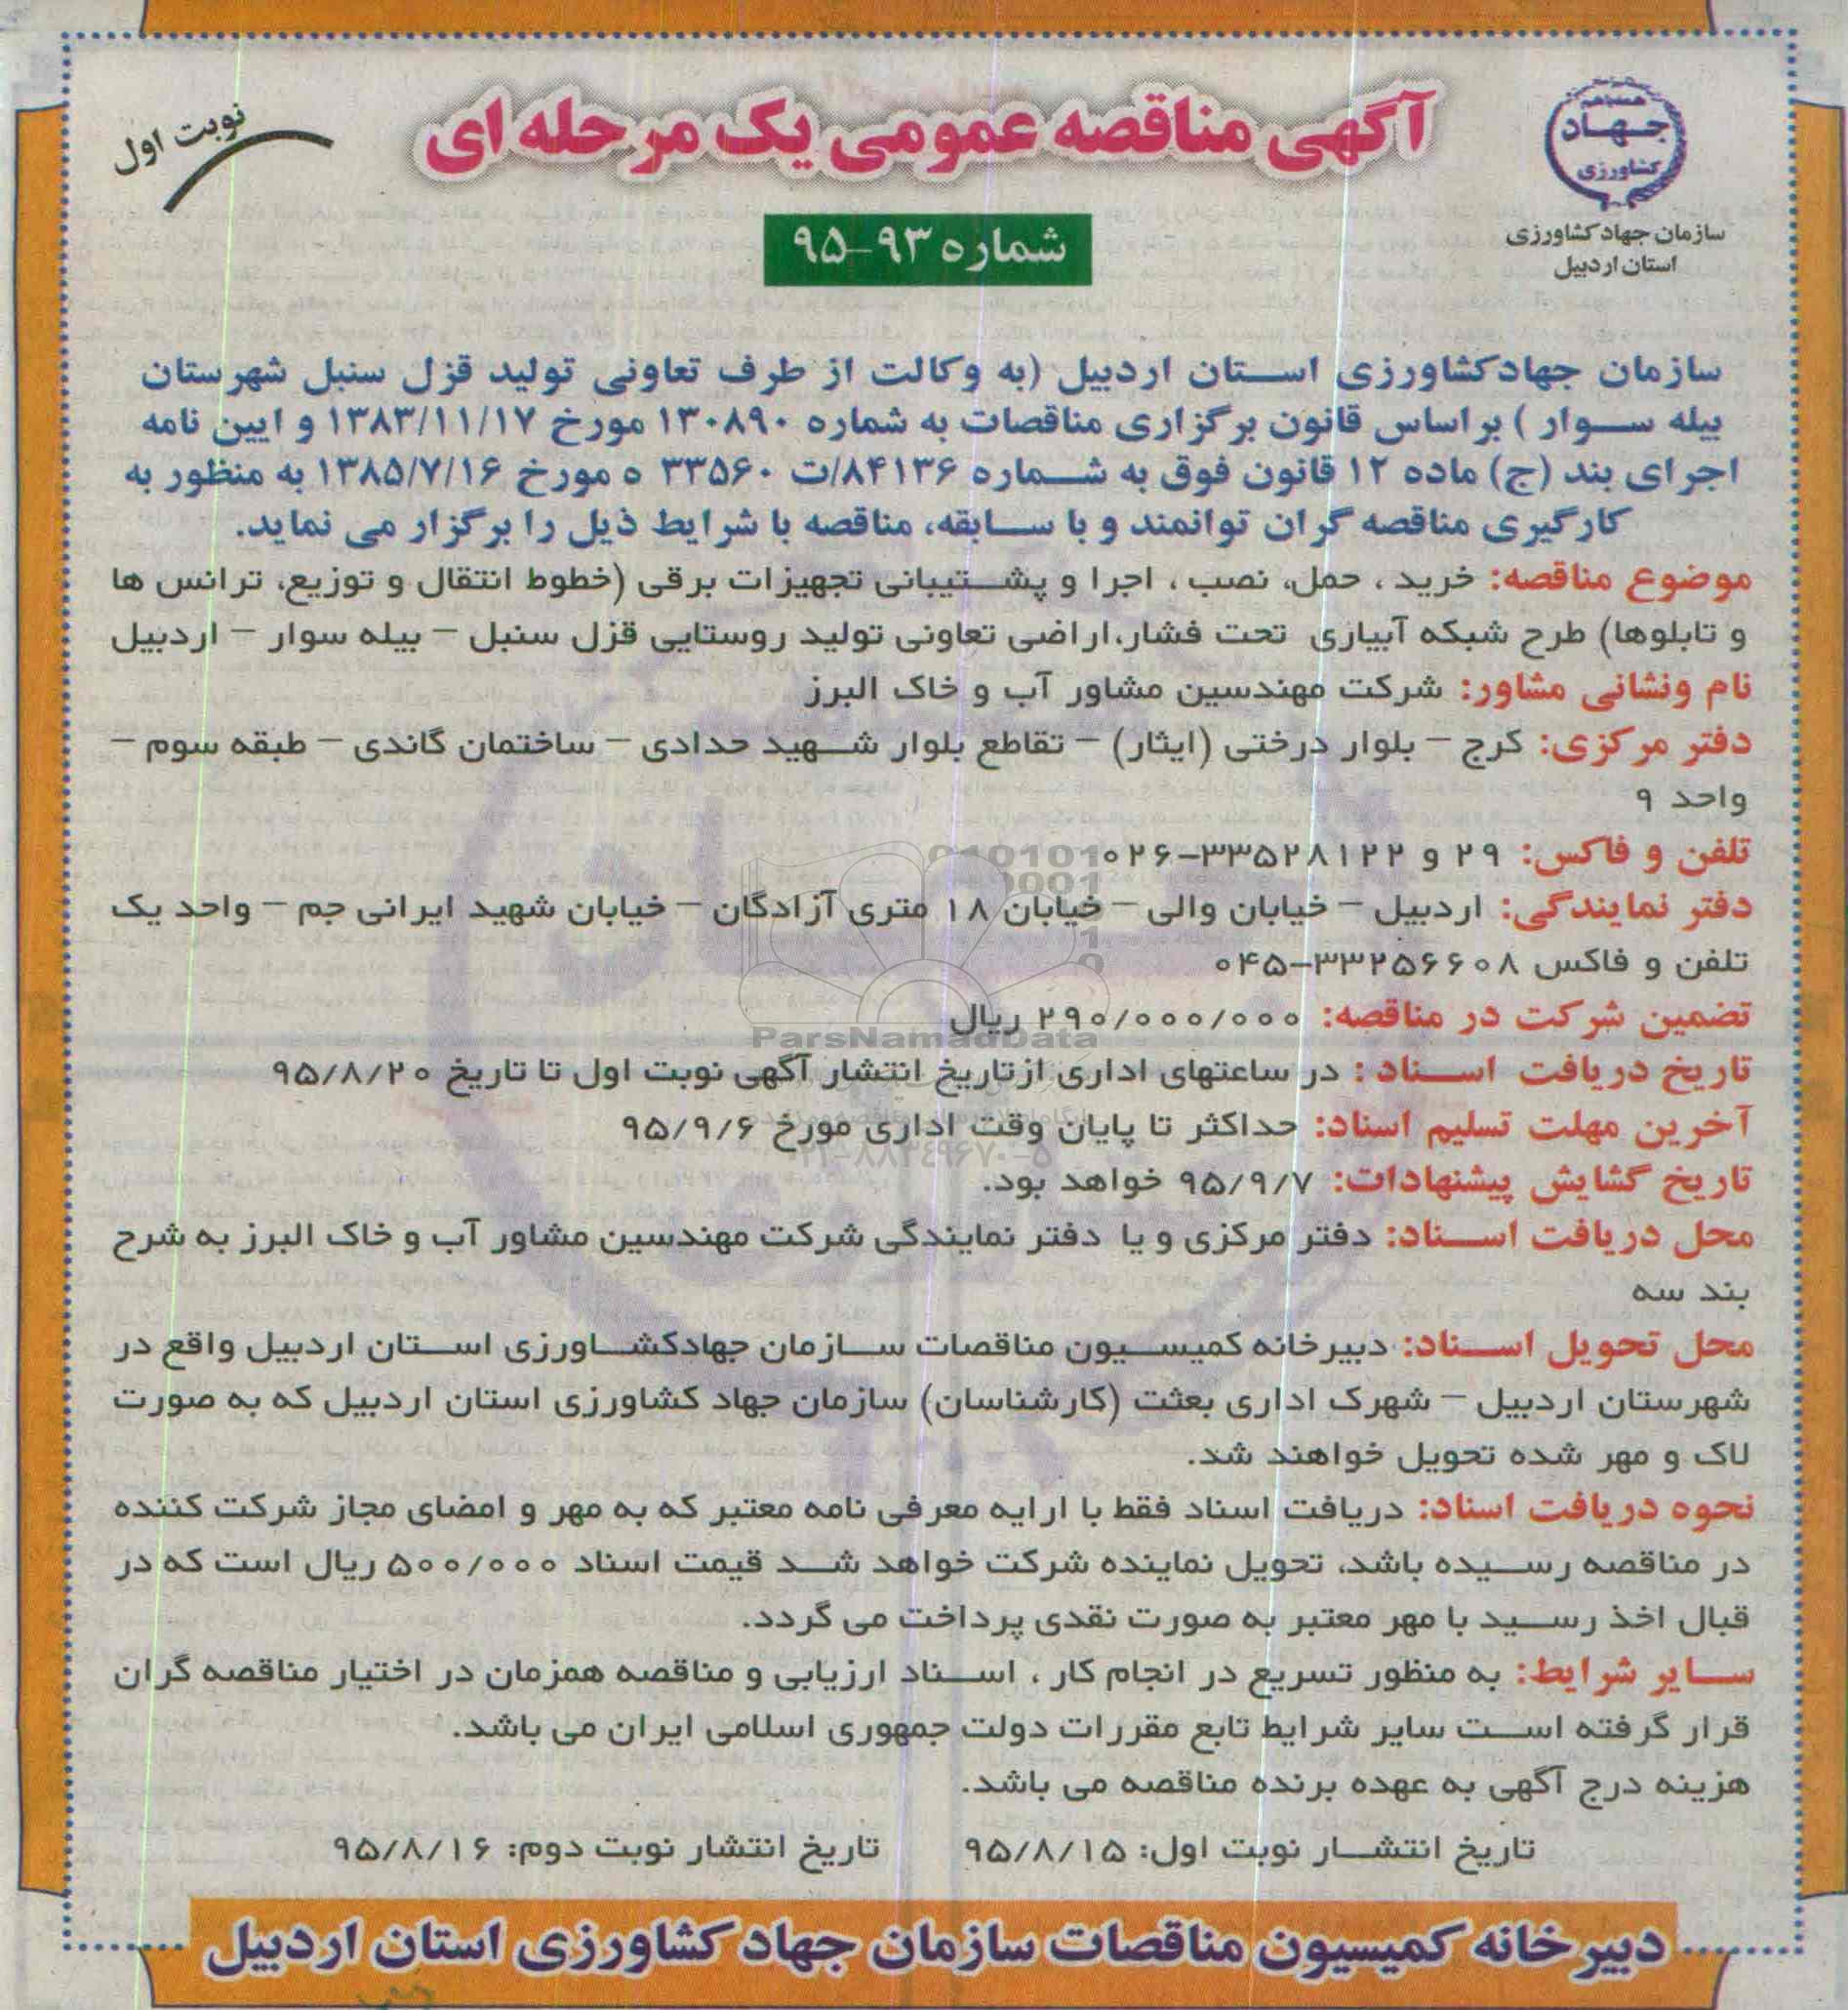 آگهی مناقصه عمومی یک مرحله ای
نوبت اول
همه با هم
جهاد
کشاورزی
سازمان جهاد کشاورزی
استان اردبیل
شماره ۹۳-۹۵
سازمان جهادکشاورزی استان اردبیل (به وکالت از طرف تعاونی تولید قزل سنبل شهرستان
بیله سوار ) براساس قانون برگزاری مناقصات به شماره ۱۳۰۸۹۰ مورخ ۱۳۸۳/۱۱/۱۷ و ایین نامه
اجرای بند (ج) ماده ۱۲ قانون فوق به شماره ۸۴۱۳۶/ت ۳۳۵۶۰ ه مورخ ۱۳۸۵/۷/۱۶ به منظور به
کارگیری مناقصه گران توانمند و با سابقه، مناقصه با شرایط ذیل را برگزار می نماید.
موضوع مناقصه: خرید ، حمل، نصب ، اجرا و پشتیبانی تجهیزات برقی (خطوط انتقال و توزیع، ترانس ها
و تابلوها) طرح شبکه آبیاری تحت فشار،اراضی تعاونی تولید روستایی قزل سنبل – بیله سوار – اردبیل
نام ونشانی مشاور: شرکت مهندسین مشاور آب و خاک البرز
دفتر مرکزی: کرج – بلوار درختی (ایثار) – تقاطع بلوار شهید حدادی – ساختمان گاندی – طبقه سوم –
واحد ۹
تلفن و فاکس: ۲۹ و ۳۳۵۲۸۱۲۲-۰۲۶
دفتر نمایندگی: اردبیل – خیابان والی – خیابان ۱۸ متری آزادگان – خیابان شهید ایرانی جم – واحد یک
تلفن و فاکس ۳۳۲۵۶۶۰۸-۰۴۵
تضمین شرکت در مناقصه: ۲۹۰/۰۰۰/۰۰۰ ریال
ParsNamadData
تاریخ دریافت اسناد : در ساعتهای اداری ازتاریخ انتشار آگهی نوبت اول تا تاریخ ۹۵/۸/۲۰
آخرین مهلت تسلیم اسناد: حداکثر تا پایان وقت اداری مورخ ۹۵/۹/۶
۰۲۱-۸۸۳۴۹۶۷۰-۵
تاریخ گشایش پیشنهادات: ۹۵/۹/۷ خواهد بود.
محل دریافت اسناد: دفتر مرکزی و یا دفتر نمایندگی شرکت مهندسین مشاور آب و خاک البرز به شرح
بند سه
محل تحویل اسناد: دبیرخانه کمیسیون مناقصات سازمان جهادکشاورزی استان اردبیل واقع در
شهرستان اردبیل – شهرک اداری بعثت (کارشناسان) سازمان جهاد کشاورزی استان اردبیل که به صورت
لاک و مهر شده تحویل خواهند شد.
نحوه دریافت اسناد: دریافت اسناد فقط با ارایه معرفی نامه معتبر که به مهر و امضای مجاز شرکت کننده
در مناقصه رسیده باشد، تحویل نماینده شرکت خواهد شد قیمت اسناد ۵۰۰/۰۰۰ ریال است که در
قبال اخذ رسید با مهر معتبر به صورت نقدی پرداخت می گردد.
سایر شرایط: به منظور تسریع در انجام کار ، اسناد ارزیابی و مناقصه همزمان در اختیار مناقصه گران
قرار گرفته است سایر شرایط تابع مقررات دولت جمهوری اسلامی ایران می باشد.
هزینه درج آگهی به عهده برنده مناقصه می باشد.
تاریخ انتشار نوبت اول: ۹۵/۸/۱۵ تاریخ انتشار نوبت دوم: ۹۵/۸/۱۶
دبیرخانه کمیسیون مناقصات سازمان جهاد کشاورزی استان اردبیل